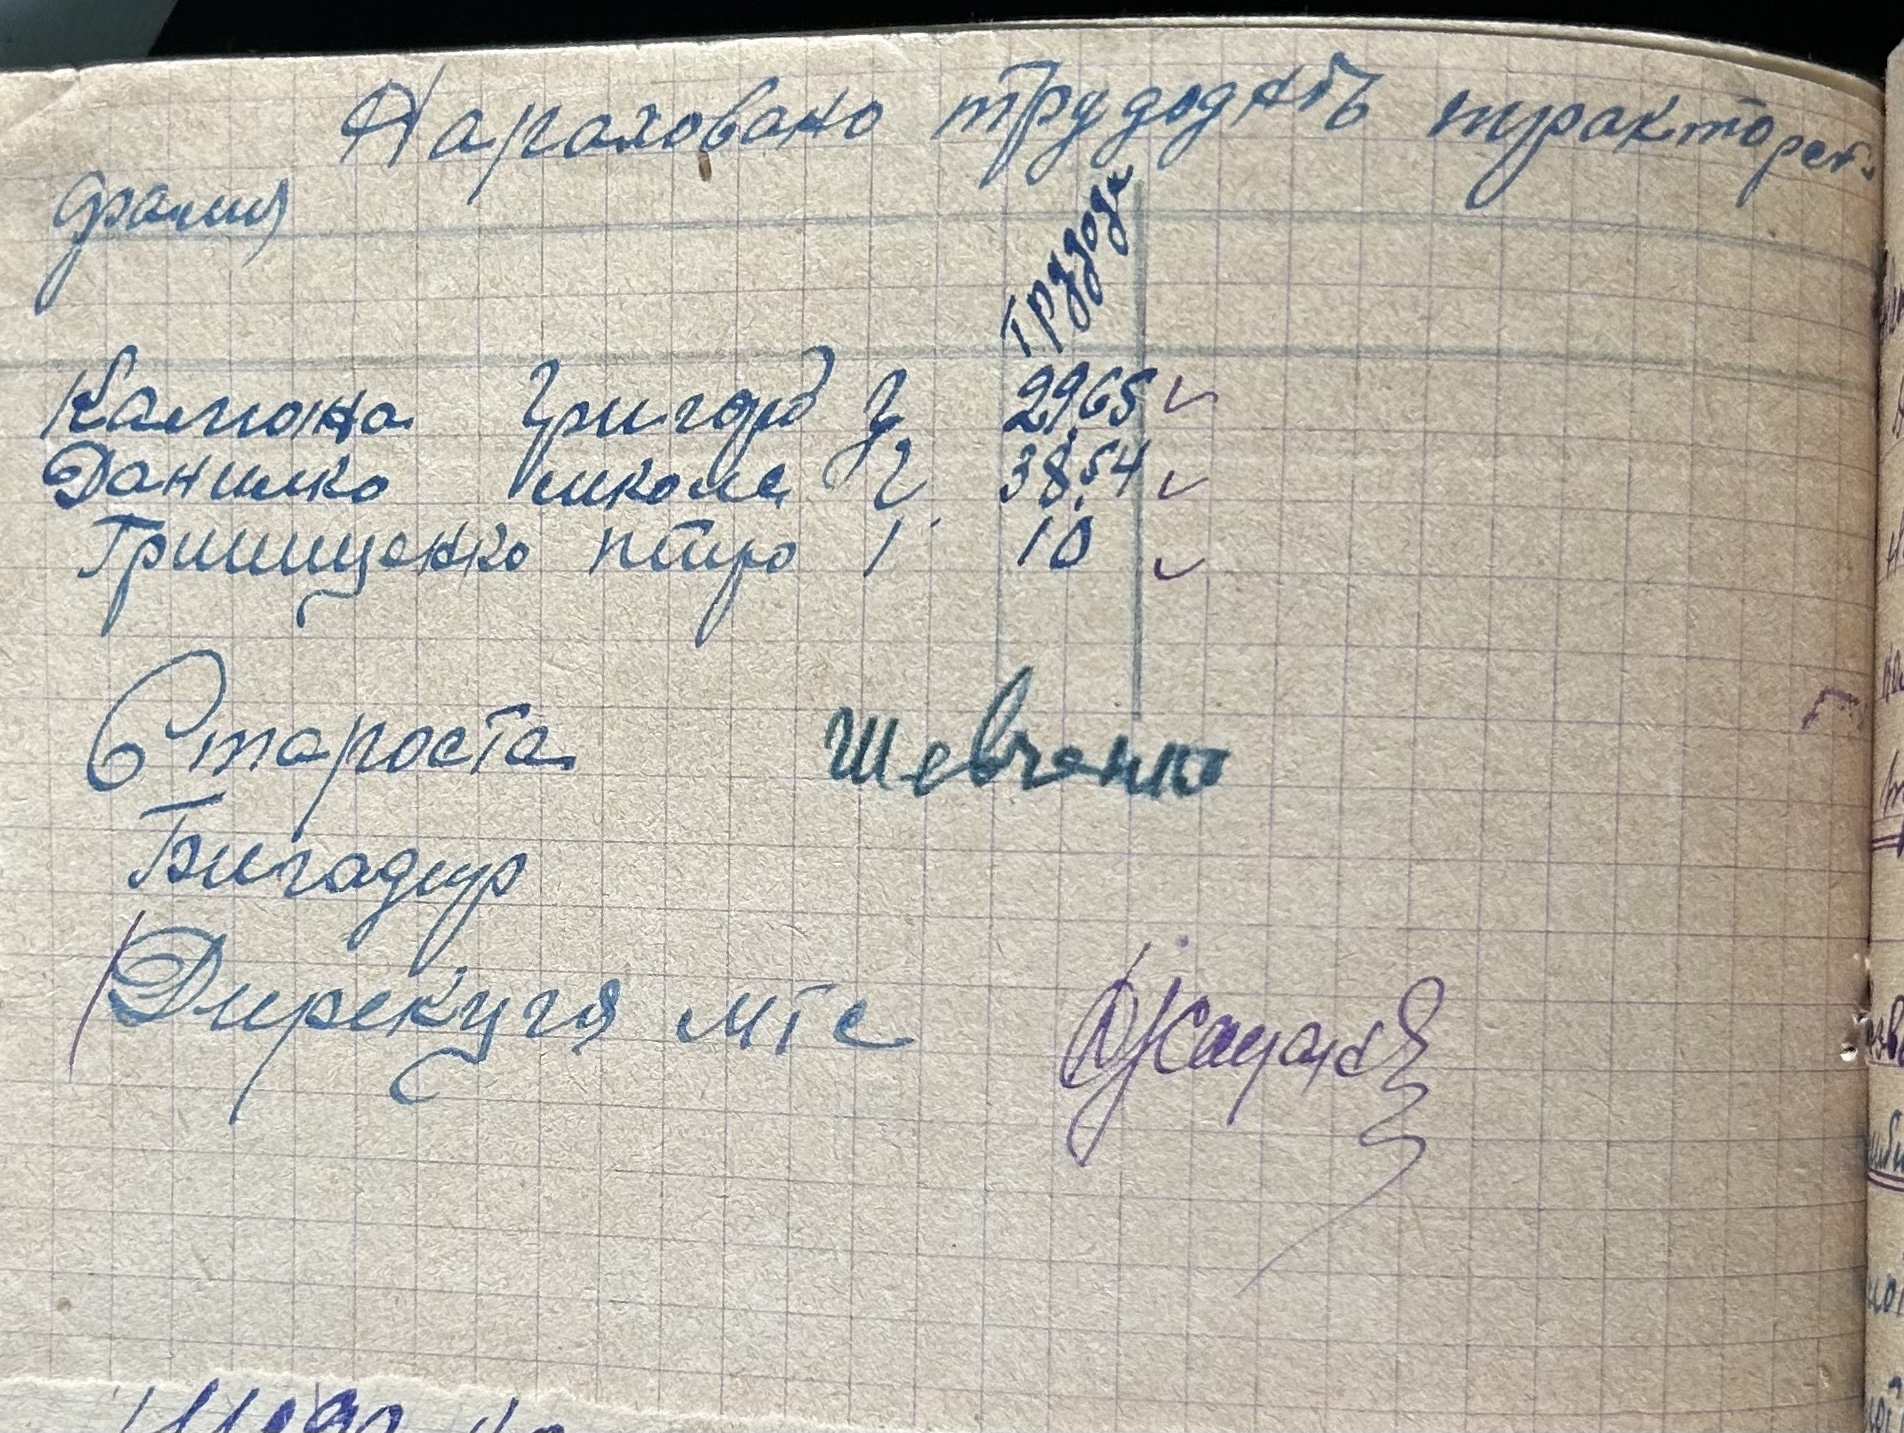 Нараховано трудоднів тракторст.
фамия
Трудодн
Калюжа Григорій У 29,65
Данилко Микола У. 38,54
Грищенко Питро І. 10
Староста Шевченко
Бигадир
Дирекция МТС